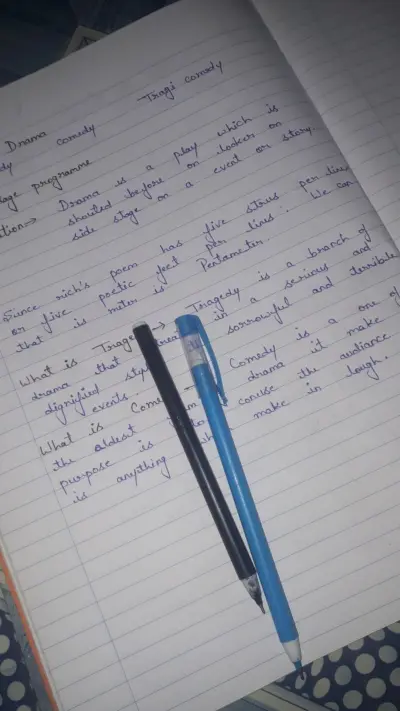 Drama
dy comedy Tragi comedy
age programme
tion → Drama is a play which is
shouted before on looker on
side stage on a event or story.
Since rich's poem has five stress per line
or five poetic feet per lines. We can
that is miter is Pentameter.
What is Trage → Tragedy is a branch of
drama that trea in a serious and
dignified style sorrowful and terrible
events.
What is Come → Comedy is a one of
the oldest drama it make
purpose is to the audience
is anything make in lough.